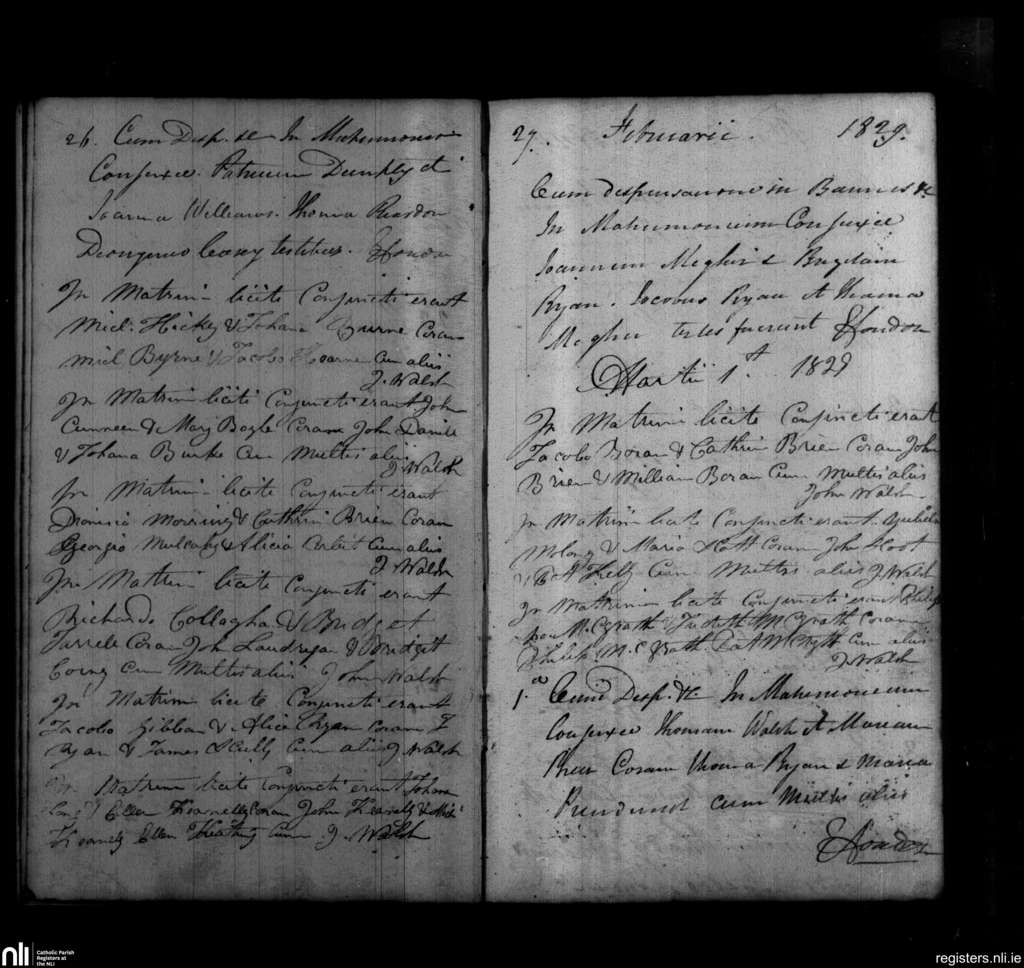 26. Cum Disp. &c In Matrimonio
Conjunxi Patricium Dunphy et
Joanna Williams. Thoma Reardon
Dionysius Casey testibus.
In Matrim- licite Conjuncti erant
Micl. Hickey & Johana Burne Coram
Micl Byrne & Jacobo Hearne Cum aliis
J. Walsh
In Matrim licite Conjuncti erant John
Cunneen & Mary Bagle Coram John Daniel
& Johana Burke Cum Multis aliis
J Walsh
In Matrim- licite Conjuncti erant
Dionisio Morring & Cathrin Brien Coram
Georgio Mulcahy & Alicia Cum aliis
J Walsh
In Matrim licite Conjuncti erant
Richardo Collogha & Bridget
Tirrele Coram John Landregan & Bridget
Cum Multis aliis John Walsh
In Matrim licite Conjuncti erant
Jacobo Gibban & Alice Ryan Coram T
Ryan & James Skelly Cum aliis J Walsh
In Matrim licite Conjuncti erant Johana
Ellen Kearnelly Coram John Kearnely
Kearnely Ellen Keating Cum J. Walsh
27. Februarii. 1829.
Cum dispensatione in Bannis &c
In Matrimonium Conjunxi
Joannem Megher & Brigdam
Ryan. Jacobus Ryan et Thoma
Megher testes fuerunt
Martii 1st. 1829
In Matrim licite Conjuncti erant
Jacobo Boran & Cathrin Brien Coram John
Brien & William Boran Cum Multis aliis
John Walsh
In Matrim licite Conjuncti erant
Molony & Maria Scott Coram John Scott
& Kelly Cum Multis aliis J Walsh
In Matrim licite Conjuncti erant Philip
McGrath & Judith McGrath Coram
Philip McGrath Pat McGrath Cum aliis
J. Walsh
1.a Cum Disp. &c In Matrimonium
Conjunxi Thomam Walsh et Mariam
Coram Thoma Ryan & Maria
Prendirgast cum Multis aliis
nli
Catholic Parish
Registers at
the NLI
registers.nli.ie